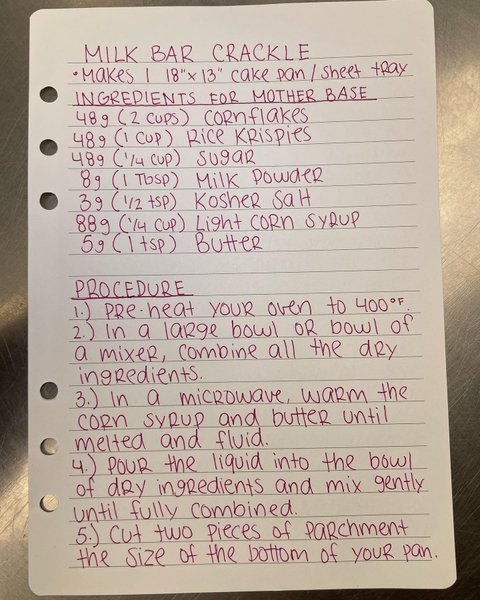 MILK BAR CRACKLE
•Makes 1 18"x13" cake pan/sheet tray
INGREDIENTS FOR MOTHER BASE
48g (2 cups) cornflakes
48g (1 cup) Rice Krispies
48g (1/4 cup) sugar
8g (1 Tbsp) Milk Powder
3g (1/2 tsp) Kosher Salt
88g (1/4 cup) Light corn syrup
5g (1 tsp) Butter
PROCEDURE
1.) Pre-heat your oven to 400°F.
2.) In a large bowl or bowl of
a mixer, combine all the dry
ingredients.
3.) In a microwave, warm the
corn syrup and butter until
melted and fluid.
4.) Pour the liquid into the bowl
of dry ingredients and mix gently
until fully combined.
5.) Cut two pieces of parchment
the size of the bottom of your pan.